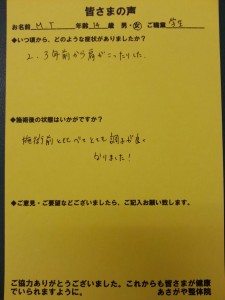 皆さまの声
お名前 M.T 年齢 14 歳 男・女 ご職業 学生
◆いつ頃から、どのような症状がありましたか?
2、3年前から肩がこったりした。
◆施術後の状態はいかがですか?
施術前とくらべてとても調子が良く
なりました!
◆ご意見・ご要望などございましたら、ご記入お願い致します。
ご協力ありがとうございました。これからも皆さまが健康
でいられますように。 あさがや整体院